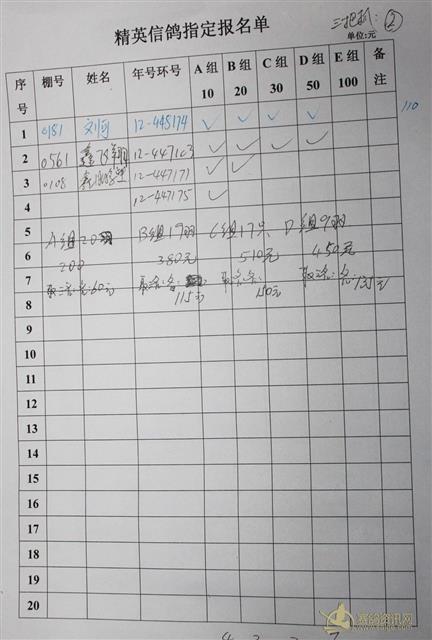 精英信鸽指定报名单
三把抓: ②
单位:元
序号 棚号 姓名 年号环号 A 组 10 B 组 20 C 组 30 D 组 50 E 组 100 备注
1 0181 12-448174 ✓ ✓ ✓ ✓ 110
2 0561 12-447163 ✓ ✓ ✓ ✓
3 0108 12-447171 ✓ ✓
4 12-447175 ✓
5 A组20羽 B组19羽 C组17只 D组9羽
6 200 380元 510元 450元
7 取三名:各:60元 取三名:各 115元 150元 各:135元
8
9
10
11
12
13
14
15
16
17
18
19
20
赛鸽资讯网